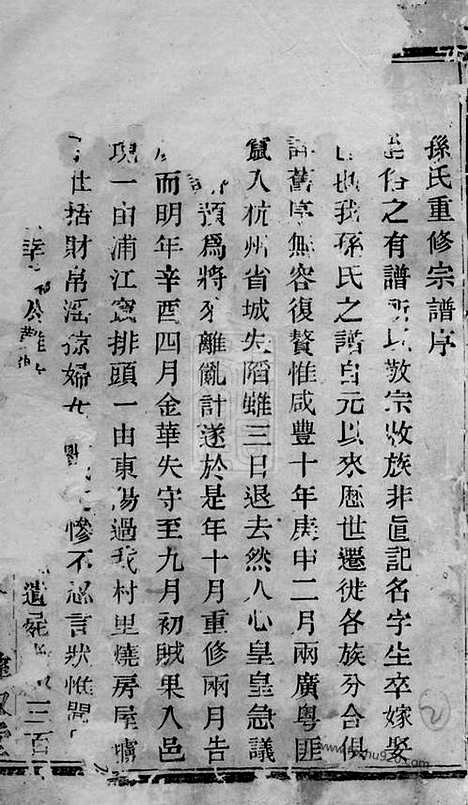 孫氏重修宗譜序
俗之有譜所以敦宗收族非真記名字生卒嫁娶
也我孫氏之譜自元以來歷世遷徙各族分合俱
譜舊序無容復贅惟咸豐十年庚申二月兩廣粵匪
竄入杭州省城失陷雖三日退去然人心皇皇急議
預為將來離亂計遂於是年十月重修兩月告
而明年辛酉四月金華失守至九月初賊果入邑
現一由浦江竄排頭一由東湯過我村里燒房屋擄
括財帛淫掠婦女慘不忍言狀惟
三百